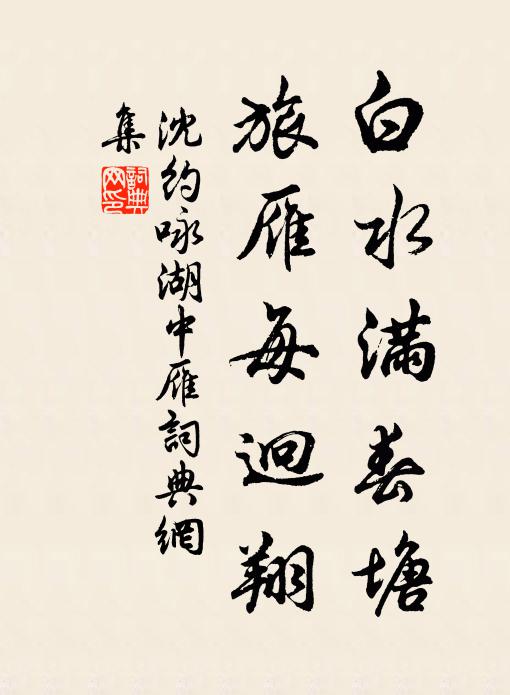 白水满春塘
旅雁每迴翔
沈约咏湖中雁詞典網
集
詞典
网印